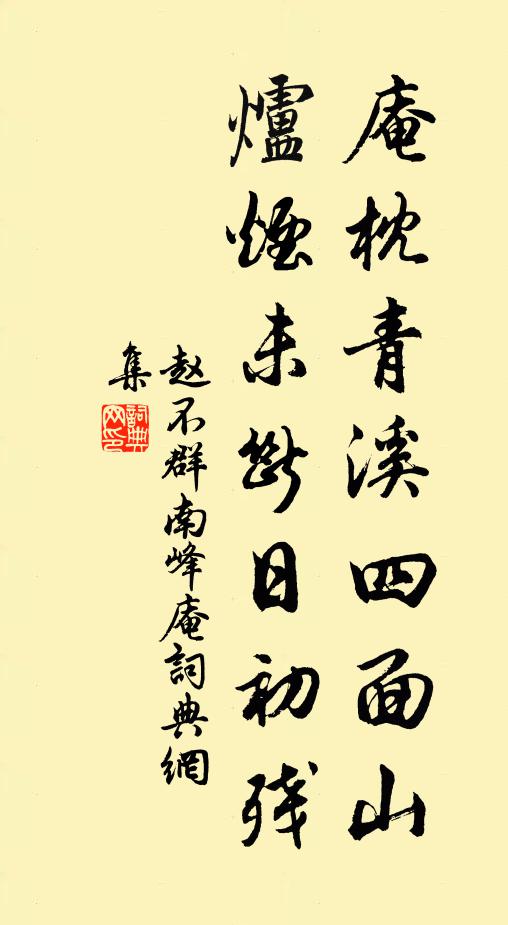 庵枕青溪四面山
爐煙未斷日初残
赵不群南峰庵詞典網
集
詞典網印